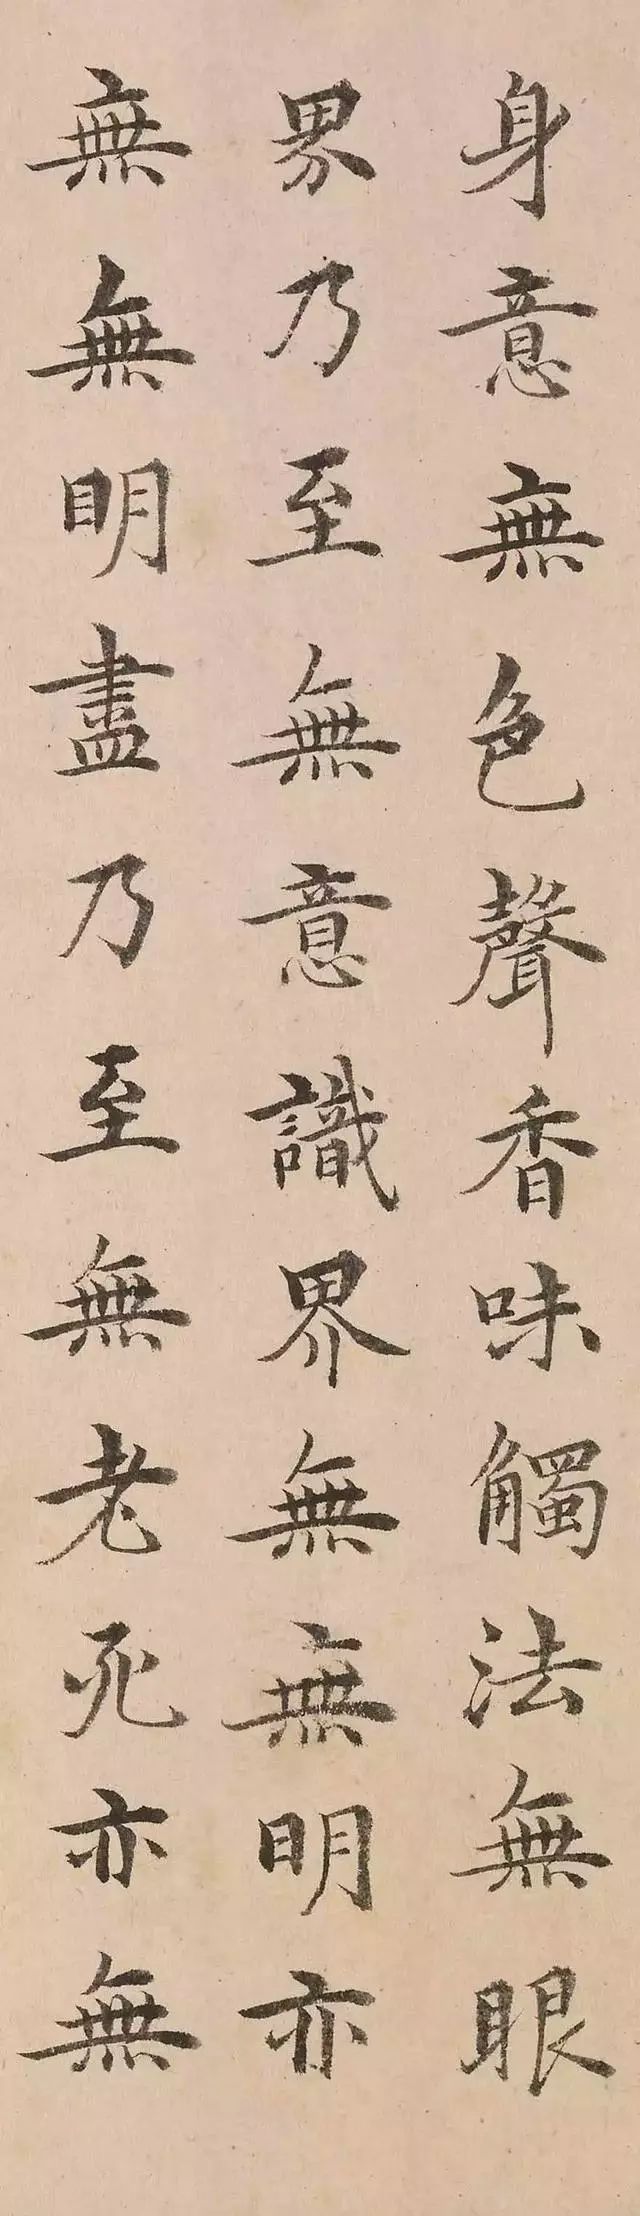 身意無色聲香味觸法無眼
界乃至無意識界無無明亦
無無明盡乃至無老死亦無